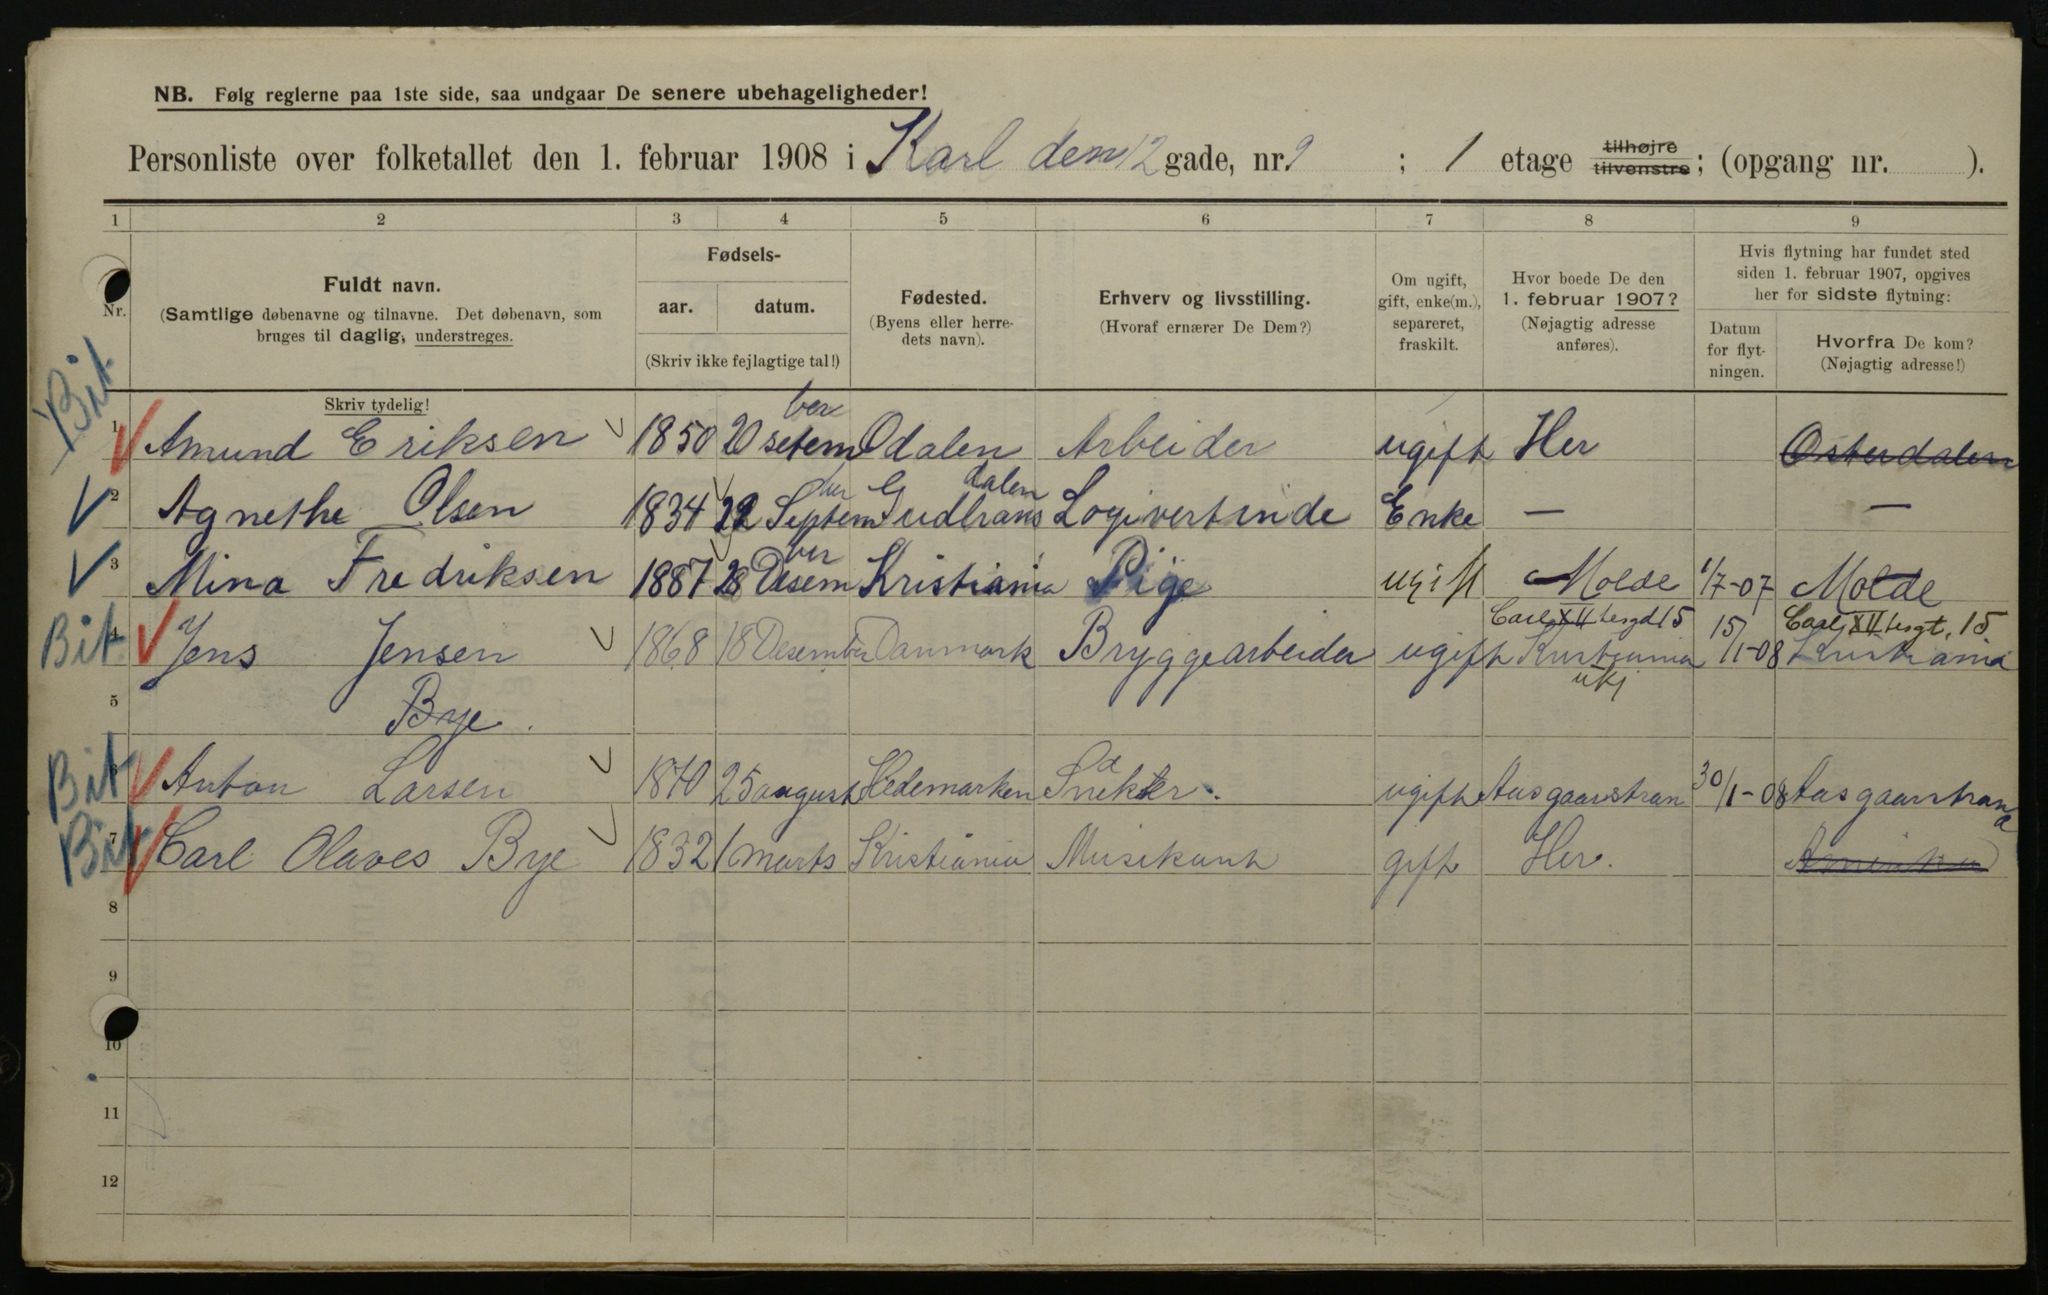 NB. Følg reglerne paa 1ste side, saa undgaar De senere ubehageligheder!
Personliste over folketallet den 1. februar 1908 i Karl den 12 gade, nr. 9 ; 1 etage tilhøjre tilvenstre; (opgang nr. ).
1 2 3 4 5 6 7 8 9
Nr.
Fuldt navn.
(Samtlige døbenavne og tilnavne. Det døbenavn, som
bruges til daglig, understreges.
Skriv tydelig!
Fødsels-
aar. datum.
(Skriv ikke fejlagtige tal!)
Fødested.
(Byens eller herre-
dets navn).
Erhverv og livsstilling.
(Hvoraf ernærer De Dem?)
Om ugift,
gift, enke(m.),
separeret,
fraskilt.
Hvor boede De den
1. februar 1907?
(Nøjagtig adresse
anføres).
Hvis flytning har fundet sted
siden 1. februar 1907, opgives
her for sidste flytning:
Datum
for flyt-
ningen.
Hvorfra De kom?
(Nøjagtig adresse!)
Bit 1 Amund Eriksen 1850 20 setember Odalen Arbeider ugift Her Østerdalen
2 Agnethe Olsen 1834 22 September Gudbransdalen Logivertinde Enke — —
3 Mina Fredriksen 1887 28 Desember Kristiania Pige ugift Molde 1/7-07 Molde
Carl XII Carl XII 15
Bit 4 Jens Jensen 1868 18 Desember Danmark Bryggearbeider ugift Kristiania 15/1-08 Kristiania
ukj
5 Bye.
Bit 6 Anton Larsen 1870 25 august Hedemarken Snekker. ugift Aasgaarstran 30/1-08 Aasgaarstrand
Bit 7 Carl Olaves Bye 1832 1 marts Kristiania Musikant gift Her. Amerika
8
9
10
11
12